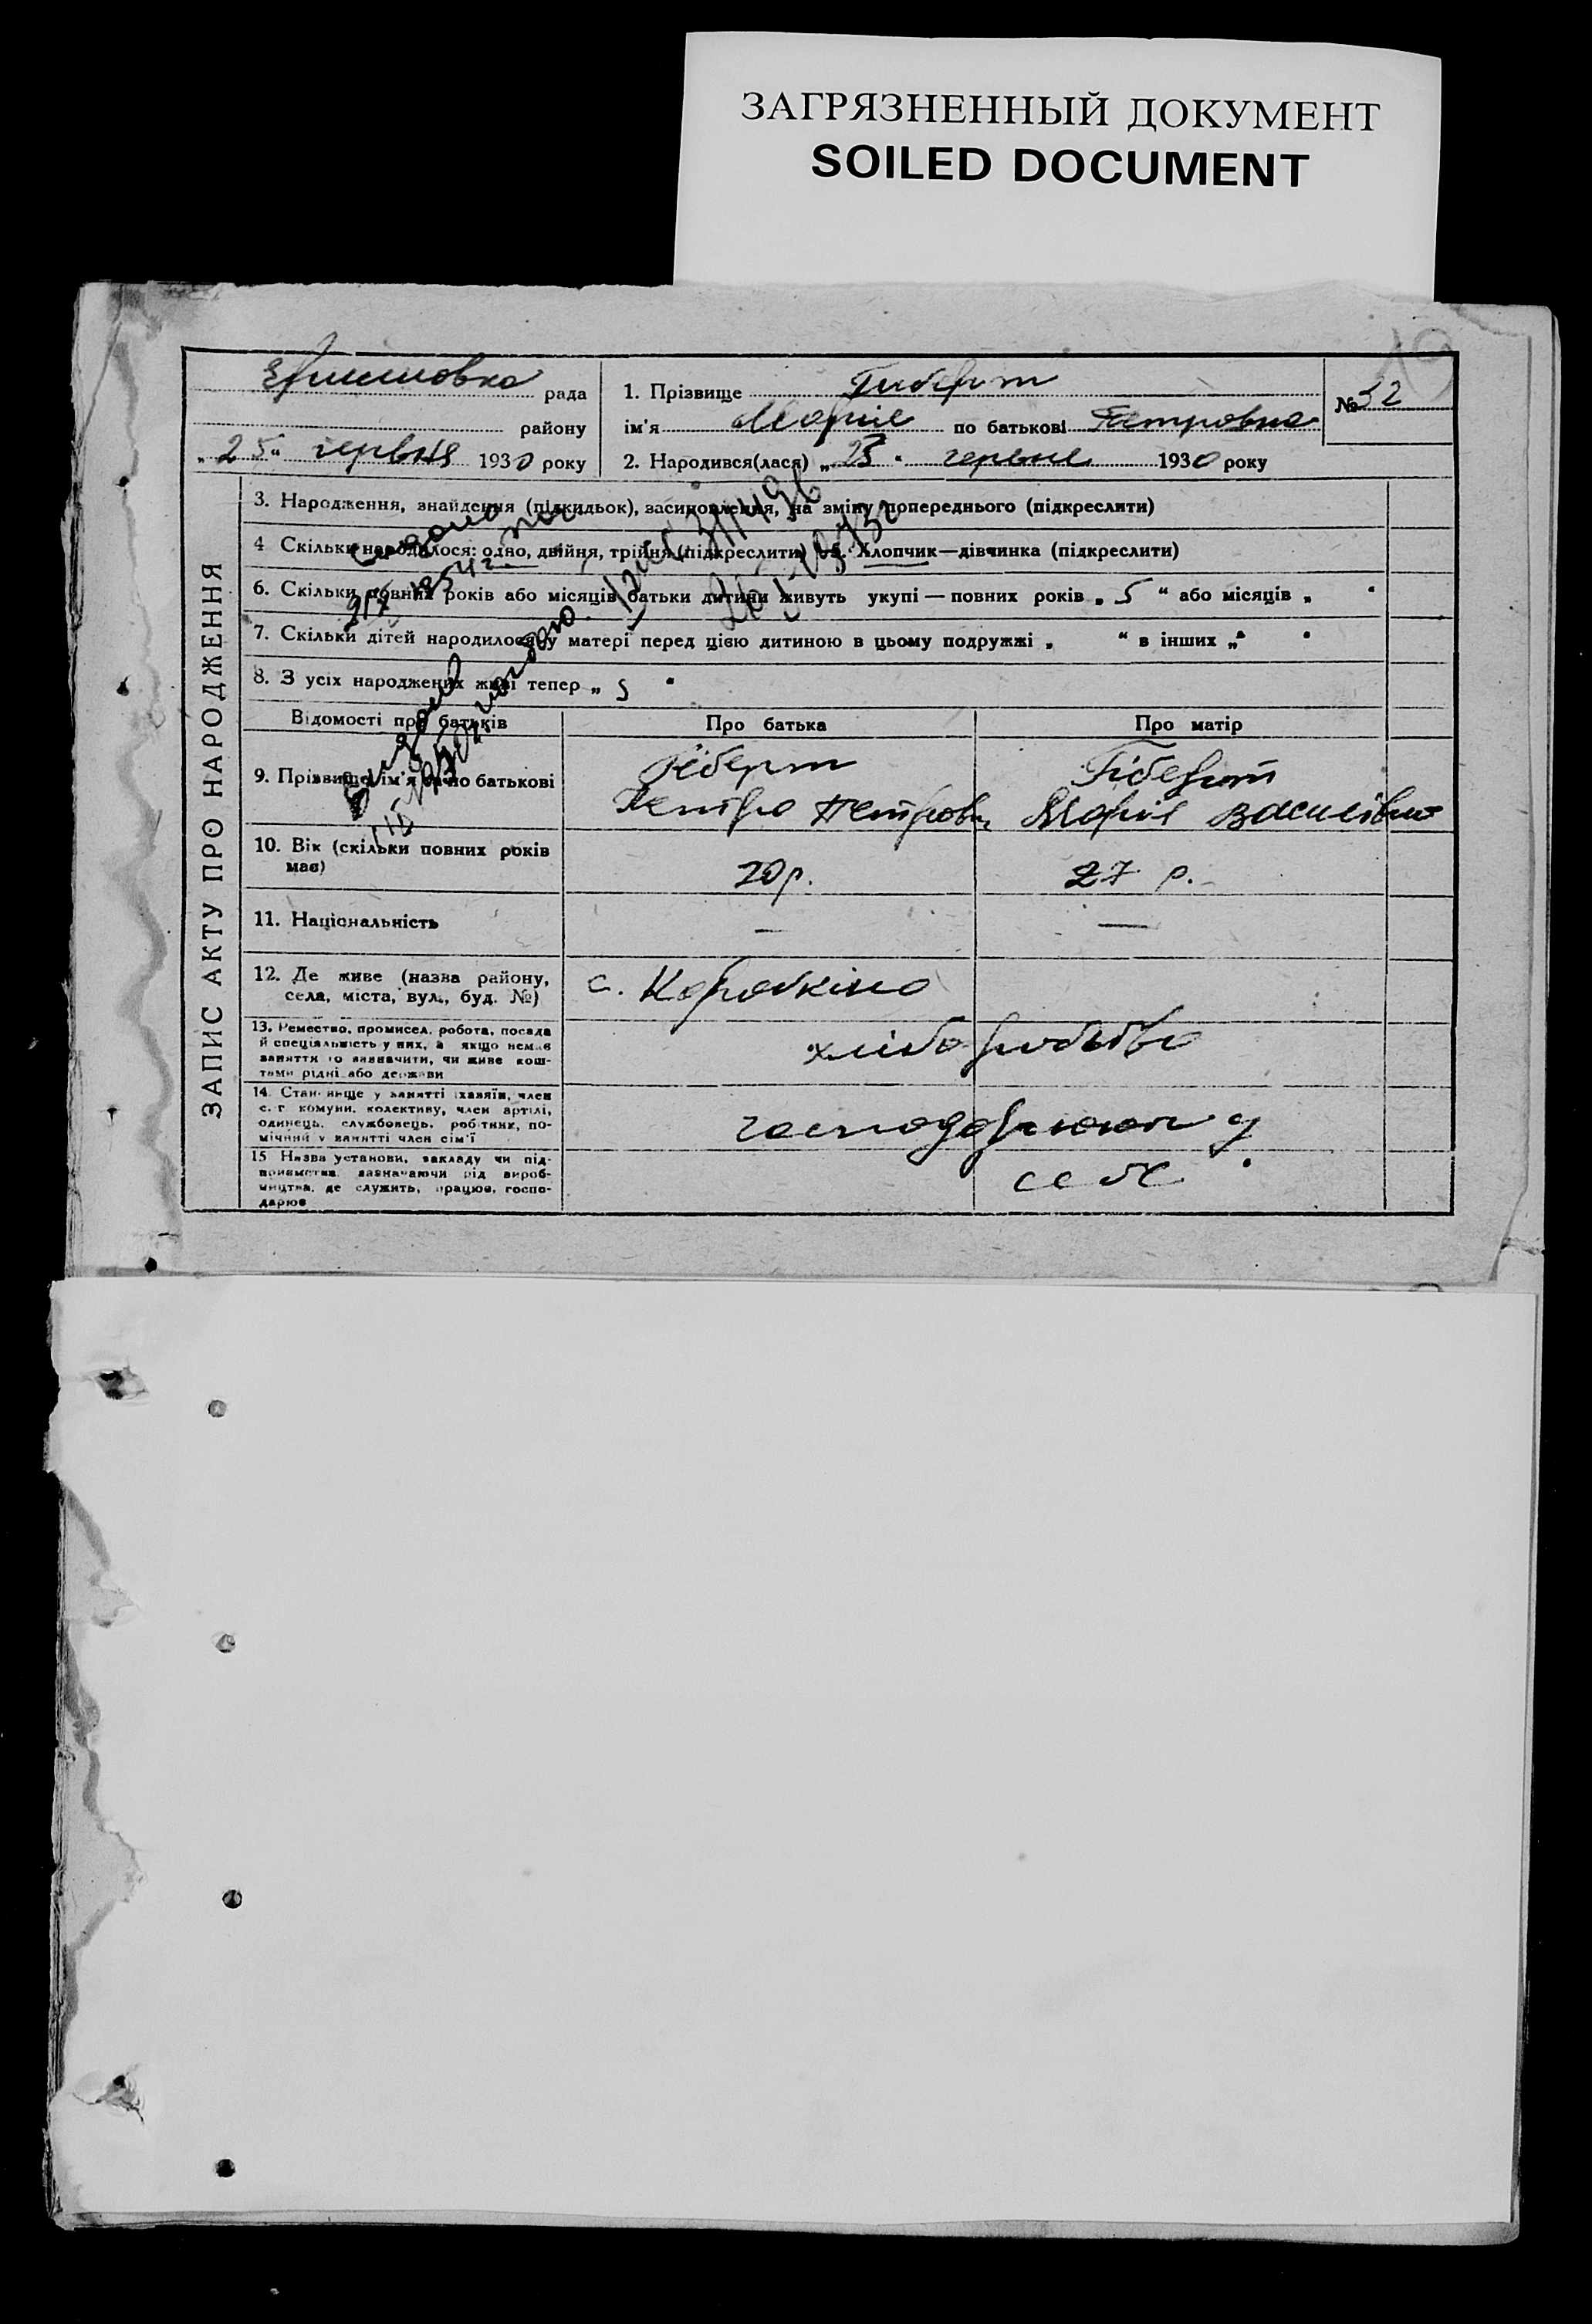 ЗАГРЯЗНЕННЫЙ ДОКУМЕНТ
SOILED DOCUMENT
19
рада
району
„25“ червня 1930 року
1. Прізвище Гиберт
ім'я Марія по батькові Петровна
№ 32
2. Народився(лася) „23“ червня 1930 року
ЗАПИС АКТУ ПРО НАРОДЖЕННЯ
3. Народження, знайдення (підкидьок), засиновлення, на зміну попереднього (підкреслити)
4 Скільки народилося: одно, двійня, трійня (підкреслити) 5. Хлопчик—дівчинка (підкреслити)
6. Скільки повних років або місяців батьки дитини живуть укупі — повних років „ 5 “ або місяців „ “
7. Скільки дітей народилося у матері перед цією дитиною в цьому подружжі „ “ в інших „ “
8. З усіх народжених живі тепер „ 5 “
Відомості про батьків
Про батька
Про матір
9. Прізвище, ім'я та по батькові
Гіберт
Петро Петров.
Гіберт
Марія Василівна
10. Вік (скільки повних років має)
20р.
27 р.
11. Національність
—
—
12. Де живе (назва району, села, міста, вул., буд. №)
с.
13. Ремество, промисел, робота, посада й спеціяльність у них, а якщо немає заняття то зазначити, чи живе коштами рідні або держави
хліборобство
14. Становище у занятті (хазяїн, член с.-г комуни, колективу, член артілі, одинець, службовець, робітник, помічний у занятті член сім'ї
господарюют у
15 Назва установи, закладу чи підприємства, зазначаючи рід виробництва, де служить, працює, господарює
себе